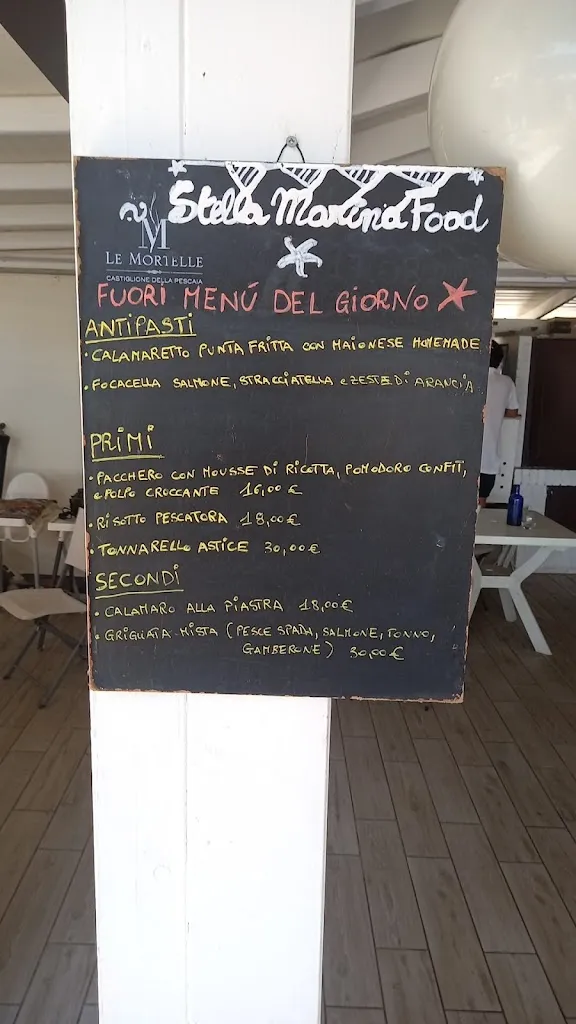 Stella Marina Food
M
LE MORTELLE
CASTIGLIONE DELLA PESCAIA
FUORI MENÚ DEL GIORNO
ANTIPASTI
• CALAMARETTO PUNTA FRITTA CON MAIONESE HOMEMADE
• FOCACELLA SALMONE, STRACCIATELLA e ZESTE DI ARANCIA
PRIMI
• PACCHERO CON MOUSSE DI RICOTTA, POMODORO CONFIT,
e POLPO CROCCANTE 16,00 €
• RISOTTO PESCATORA 18,00 €
• TONNARELLO ASTICE 30,00 €
SECONDI
• CALAMARO ALLA PIASTRA 18,00 €
• GRIGLIATA MISTA (PESCE SPADA, SALMONE, TONNO,
GAMBERONE) 30,00 €